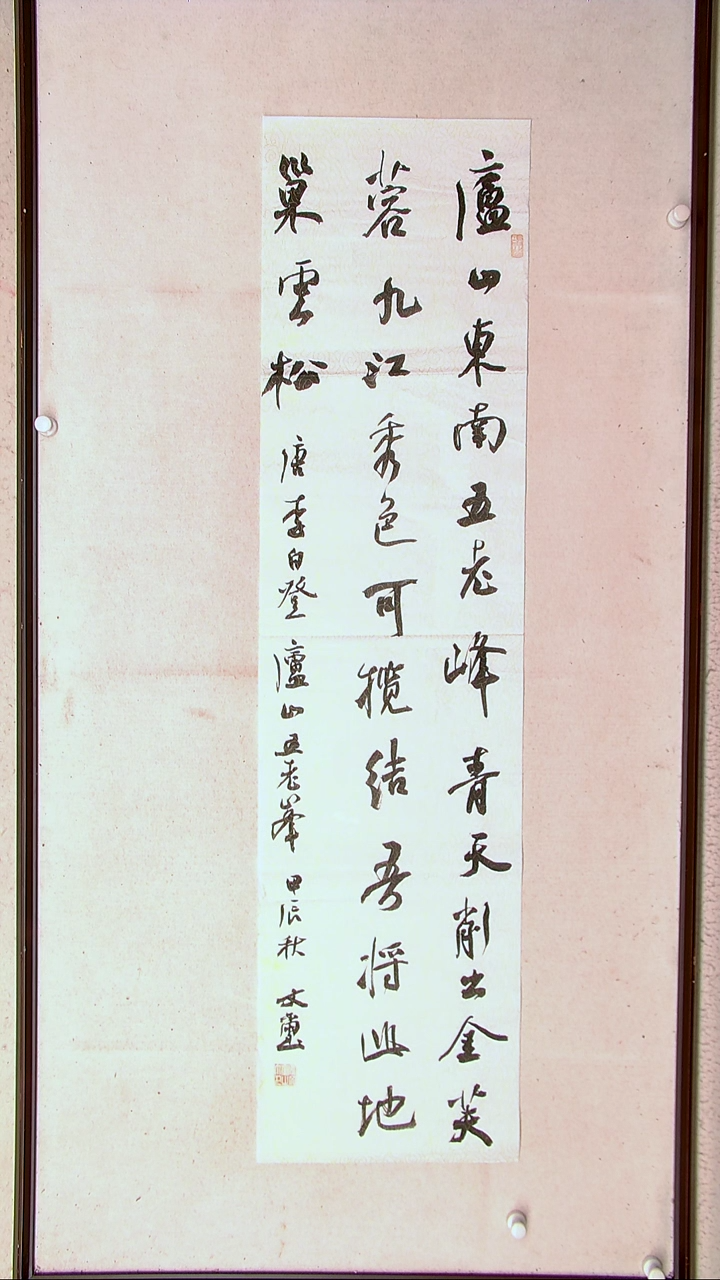 廬山東南五老峰青天削出金芙
蓉九江秀色可攬結吾將此地
巢雲松 唐李白登廬山五老峯 甲辰秋 文